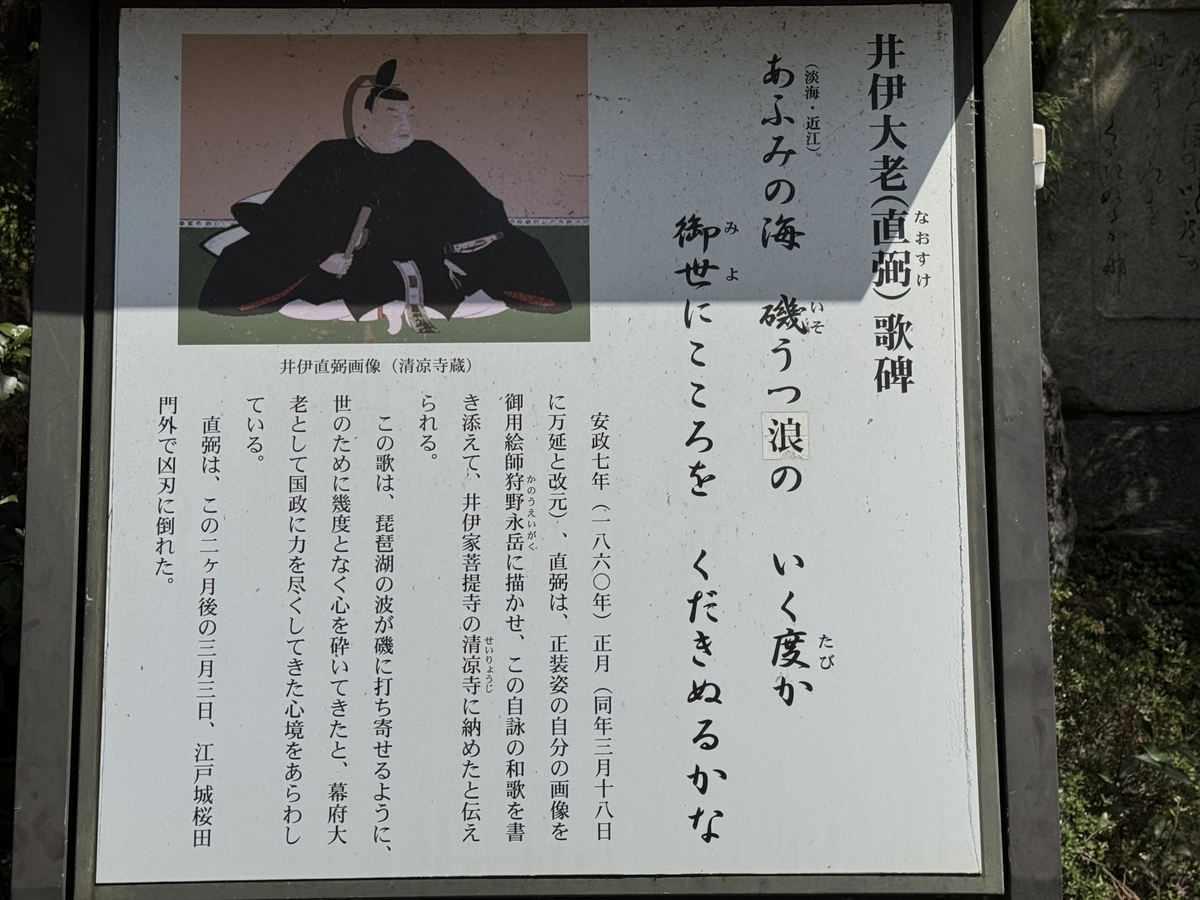 井伊大老（直弼）歌碑
なおすけ
（淡海・近江）
あふみの海　磯うつ浪の　いく度か
いそ
たび
御世にこころを　くだきぬるかな
みよ
井伊直弼画像（清凉寺蔵）
安政七年（一八六〇年）正月（同年三月十八日
に万延と改元）、直弼は、正装姿の自分の画像を
御用絵師狩野永岳に描かせ、この自詠の和歌を書
かのうえいがく
き添えて、井伊家菩提寺の清凉寺に納めたと伝え
せいりょうじ
られる。
この歌は、琵琶湖の波が磯に打ち寄せるように、
世のために幾度となく心を砕いてきたと、幕府大
老として国政に力を尽くしてきた心境をあらわし
ている。
直弼は、この二ヶ月後の三月三日、江戸城桜田
門外で凶刃に倒れた。